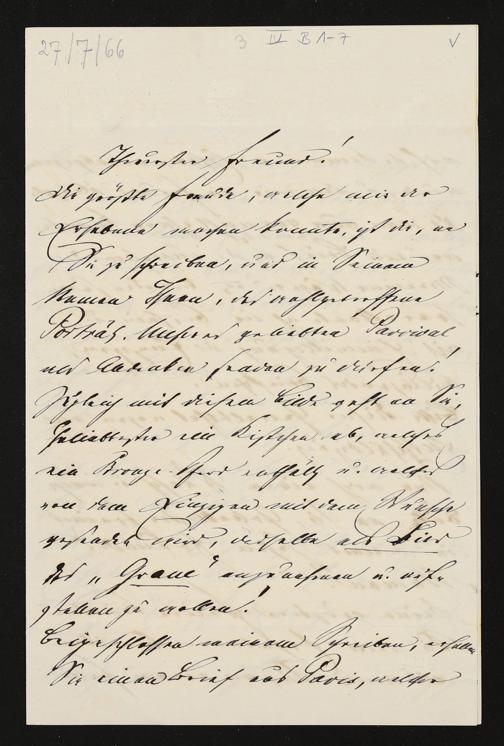 27/7/66
3 IV B 1-7
Theuerster Freund!
Die größte Freude, welche mir der
Erhabene machen konnte, ist die, an
Sie zu schreiben, und in Seinem
Namen Ihnen, das wohlgetroffene
Porträt, unseres geliebten Parcival
als Andenken senden zu dürfen!
Zugleich mit diesem Bilde geht an Sie,
Geliebtester ein Kistchen ab, welches
ein Bronze-Pferd enthält u. welches
von dem Einzigen mit dem Wunsche
gesendet wird, dasselbe als Bild
des „Grane" anzunehmen u. auf-
stellen zu wollen!
Beigeschlossen meinem Schreiben, erhalten
Sie einen Brief aus Paris, welcher